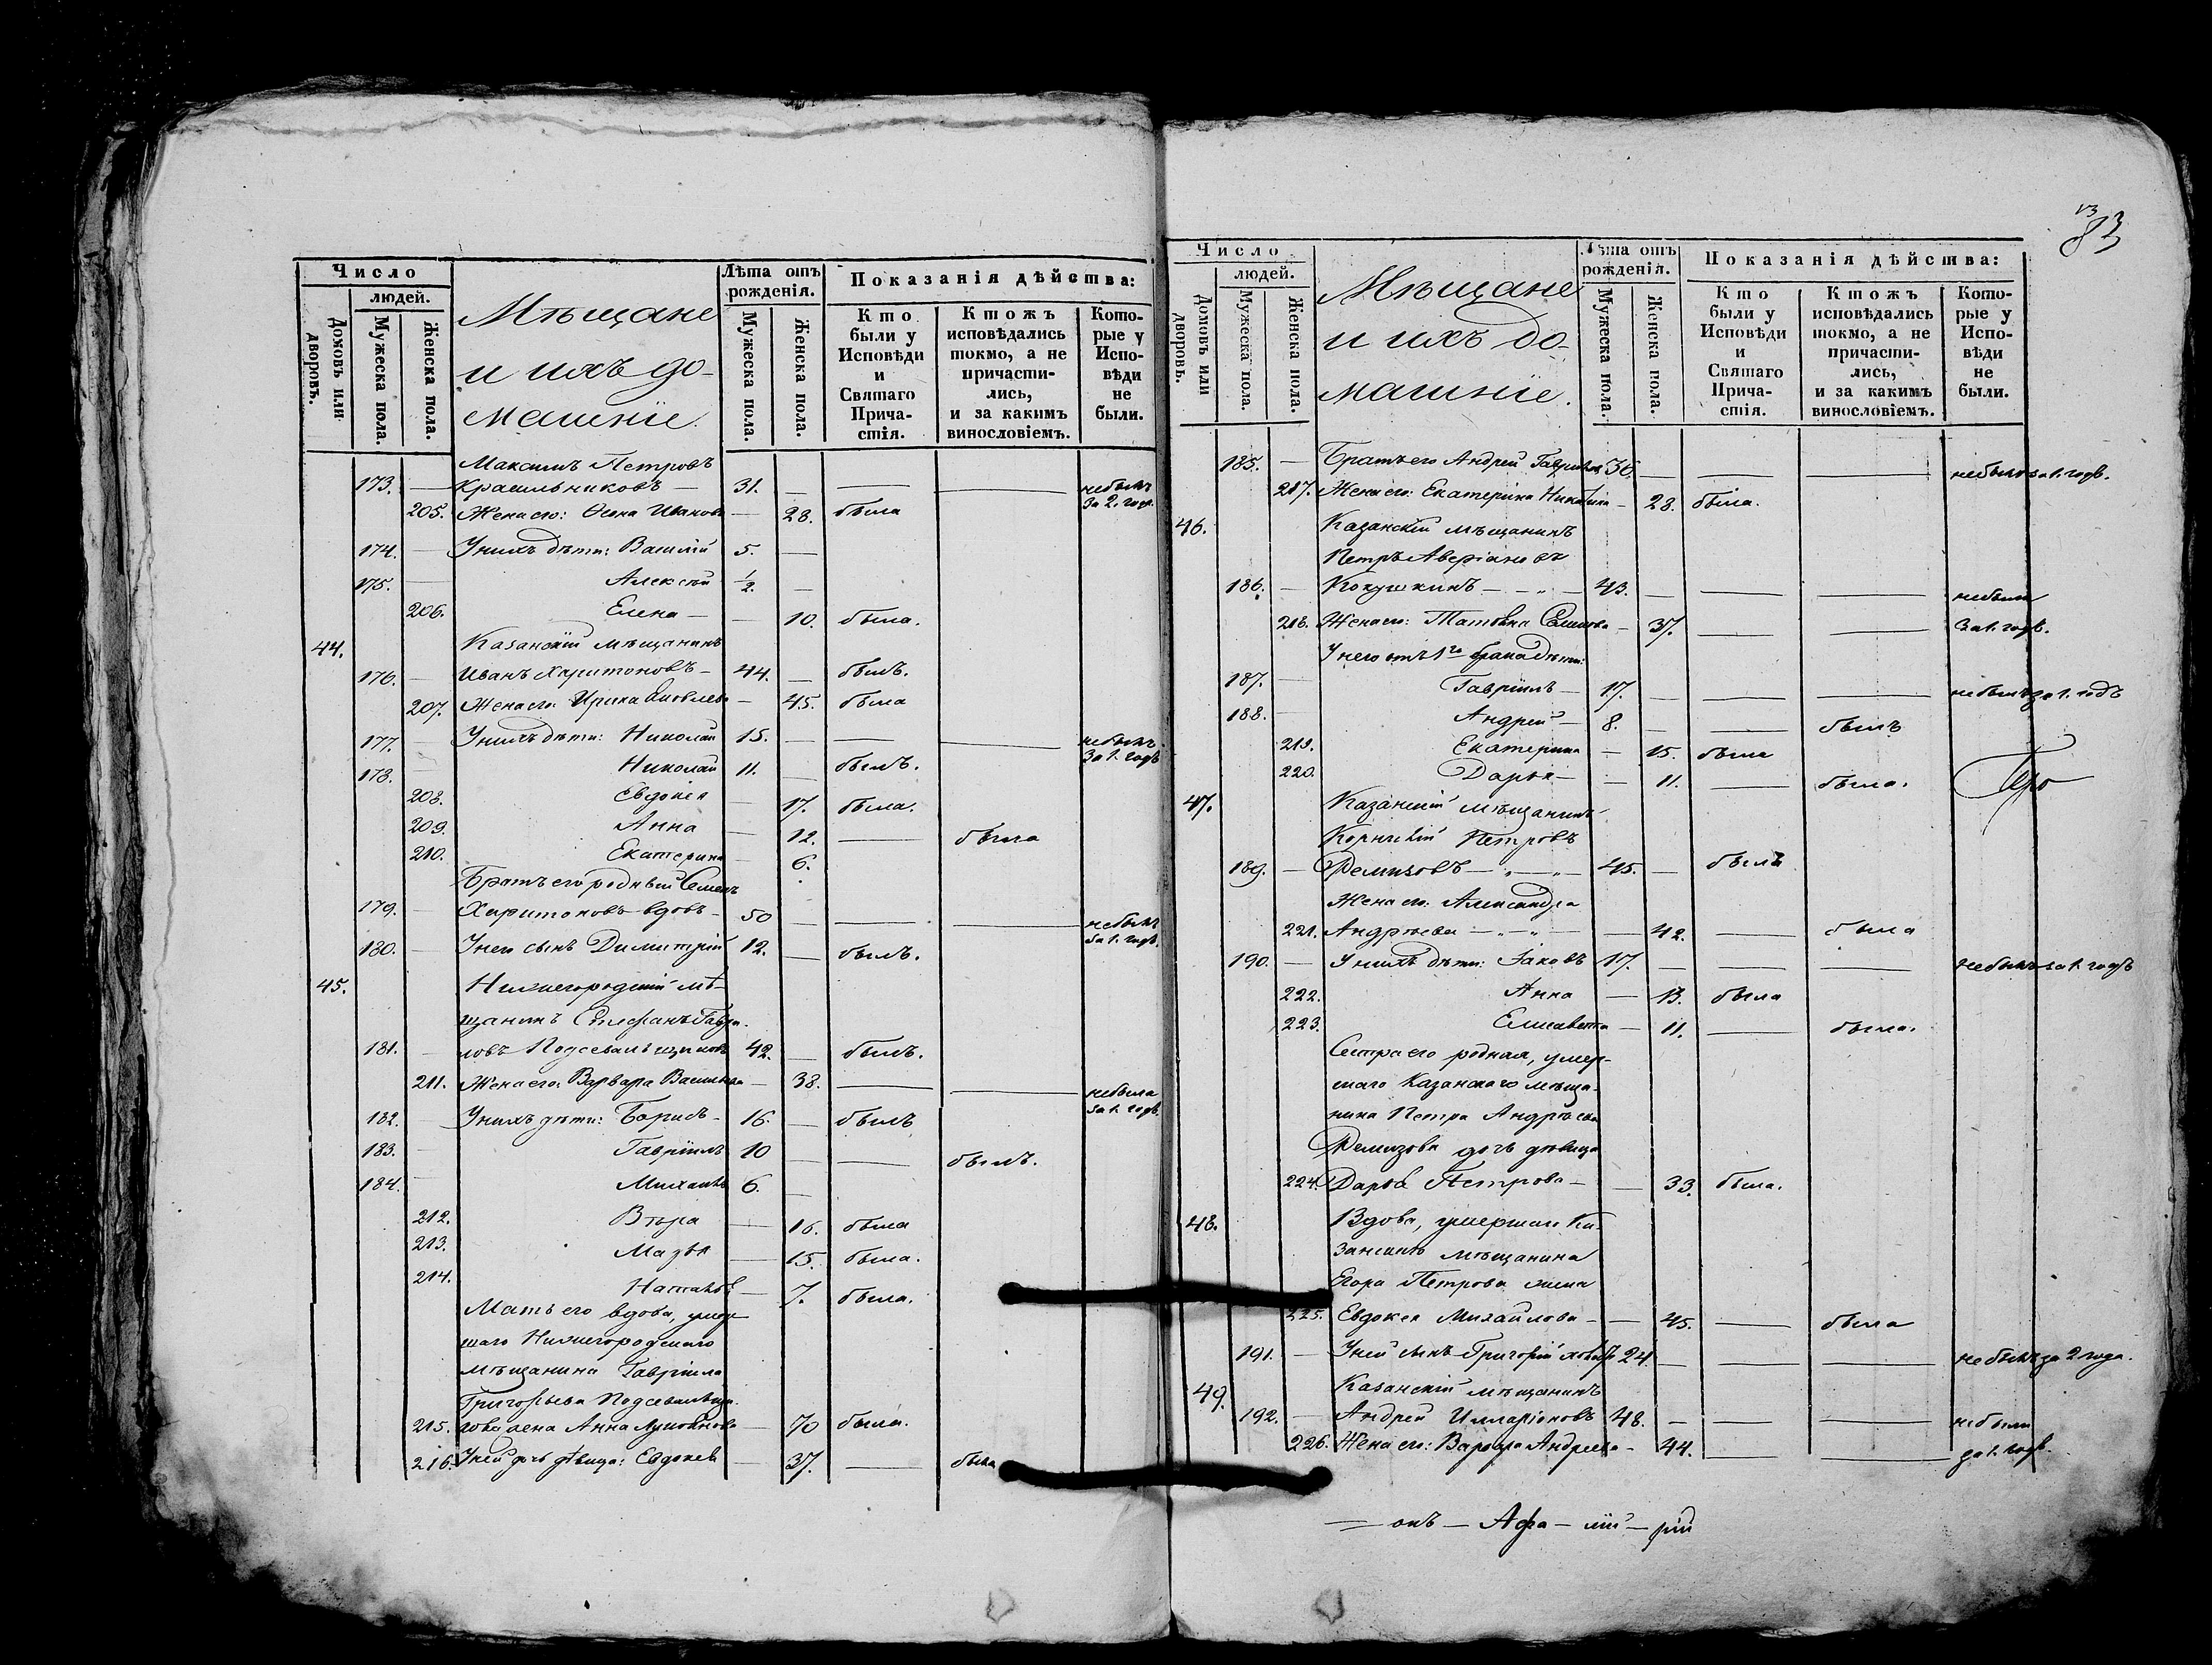 Число
людей.
Домовъ или дворовъ.
Мужеска пола.
Женска пола.
Мѣщане
и ихъ до-
машніе.
Лѣта отъ
рожденія.
Мужеска пола.
Женска пола.
Показанія дѣйства:
Кто
были у
Исповѣди
и
Святаго
Прича-
стія.
Ктожъ
исповѣдались
токмо, а не
причасти-
лись,
и за какимъ
винословіемъ.
Кото-
рые у
Испо-
вѣди
не
были.
Максимъ Петровъ
173. — Красильниковъ — 31. — — — небылъ
за 2. года.
205. Жена его: Иванова — 28. была
174. — У нихъ дѣти: Василій 5. —
175. — Алексѣй ½. —
206. Елена — — 10. была.
44. Казанскій мѣщанинъ
176. — Иванъ Харитоновъ — 44. — былъ.
207. Жена его: Ирина Яковлева — 45. была
177. — У нихъ дѣти: Николай 15. — — — небылъ
за 1. годъ
178. — Николай 11. — былъ.
208. Евдокія — 17. была.
209. Анна — 12. — была
210. Екатерина — 6.
Братъ его родный Семенъ
179. — Харитоновъ вдовъ — 50 — — — небылъ
за 1. годъ.
180. — У него сынъ Димитрій 12. — былъ.
45. Нижегородскій мѣ-
щанинъ Стефанъ Гаври-
181. — ловъ Подсевальщиковъ 42. — былъ.
211. Жена его: Варвара Васильева — 38. — — небыла
за 1. годъ.
182. — У нихъ дѣти: Борисъ — 16. — былъ
183. — Гавріилъ 10 — — былъ.
184. — Михаилъ 6. —
212. Вѣра — 16. была
213. Марья — 15. была.
214. Наталья — 7. была.
Мать его вдова, умер-
шаго Нижегородскаго
мѣщанина Гавріила
Григорьева Подсевальщи-
215. кова жена Анна — 70 была.
216. У ней дочь дѣвица: Евдокія — 37. — была
83
Число
людей.
Домовъ или дворовъ.
Мужеска пола.
Женска пола.
Мѣщане
и ихъ до-
машніе.
Лѣта отъ
рожденія.
Мужеска пола.
Женска пола.
Показанія дѣйства:
Кто
были у
Исповѣди
и
Святаго
Прича-
стія.
Ктожъ
исповѣдались
токмо, а не
причасти-
лись,
и за какимъ
винословіемъ.
Кото-
рые у
Испо-
вѣди
не
были.
185. — Братъ его Андрей Гавриловъ 36. — — — небылъ за 1. годъ.
217. Жена его: Екатерина Никитина — 28. была.
46. Казанскій мѣщанинъ
Петръ Аверіановъ
186. — Кокушкинъ — „ — 43. — — — небыли
218. Жена его: Татьяна — 37. — — за 1. годъ.
У него отъ 1го брака дѣти:
187. — Гавріилъ — 17. — — — небылъ за 1. годъ
188. — Андрей — 8. — — былъ
219. Екатерина — 15. была
220. Дарья — — 11. — была.
47. Казанскій мѣщанинъ
Корнилій Петровъ
189. — Ремизовъ — „ — „ — 45. — былъ
Жена его: Александра
221. Андрѣева — „ — „ — — 42. — была
190. — У нихъ дѣти: Іаковъ 17. — — — небылъ за 1. годъ
222. Анна — 13. была
223. Елисавета — 11. — была.
Сестра его родная, умер-
шаго Казанскаго мѣща-
нина Петра Андрѣева
Ремизова дочь дѣвица
224. Дарья Петрова — — 33. была.
48. Вдова, умершаго Ка-
занскаго мѣщанина
Егора Петрова жена
225. Евдокія Михайлова — — 45. — была
191. — У ней сынъ Григорій 24. — — — небылъ за 2 года.
49. Казанскій мѣщанинъ
192. — Андрей Илларіоновъ 48. — — — небыли
226. Жена его: Варвара Андреева — 44. — — за 1. годъ.
— онъ — Афа — лій — рій